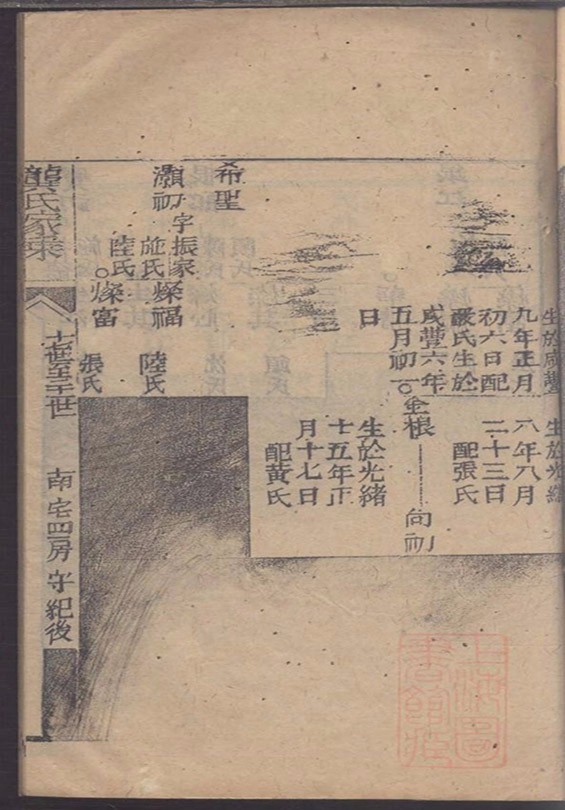 生於咸豐
九年正月
初六日配
嚴氏生於
咸豐六年
五月初一
日
生於光緒
八年八月
二十三日
配張氏
○金根
向初
生於光緒
十五年正
月十七日
配黃氏
希聖
灝初字振家 燦福
施氏 陸氏
陸氏○燦富
張氏
龔氏家乘
世至三世
南宅四房守紀後